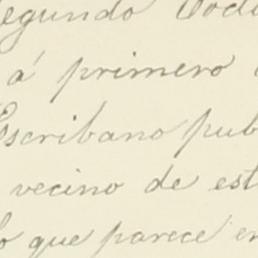 segundo
á primero
Escribano pub
vecino de est
lo que parece en